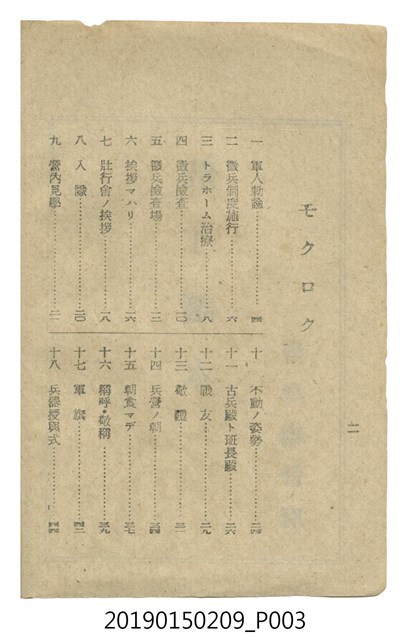 モクロク
一 軍人勅諭……四
二 徴兵制度施行……六
三 トラホーム治療……八
四 徴兵檢査……一〇
五 徴兵檢査場……一三
六 挨拶マハリ……一六
七 壯行會ノ挨拶……一八
八 入營……二〇
九 營內見學……二一
十 不動ノ姿勢……二四
十一 古兵殿ト班長殿……二六
十二 戰友……二九
十三 敬禮……三一
十四 兵營ノ朝……三四
十五 朝食マデ……三七
十六 稱呼・敬稱……三九
十七 軍旗……四二
十八 兵器授與式……四四
二
20190150209_P003